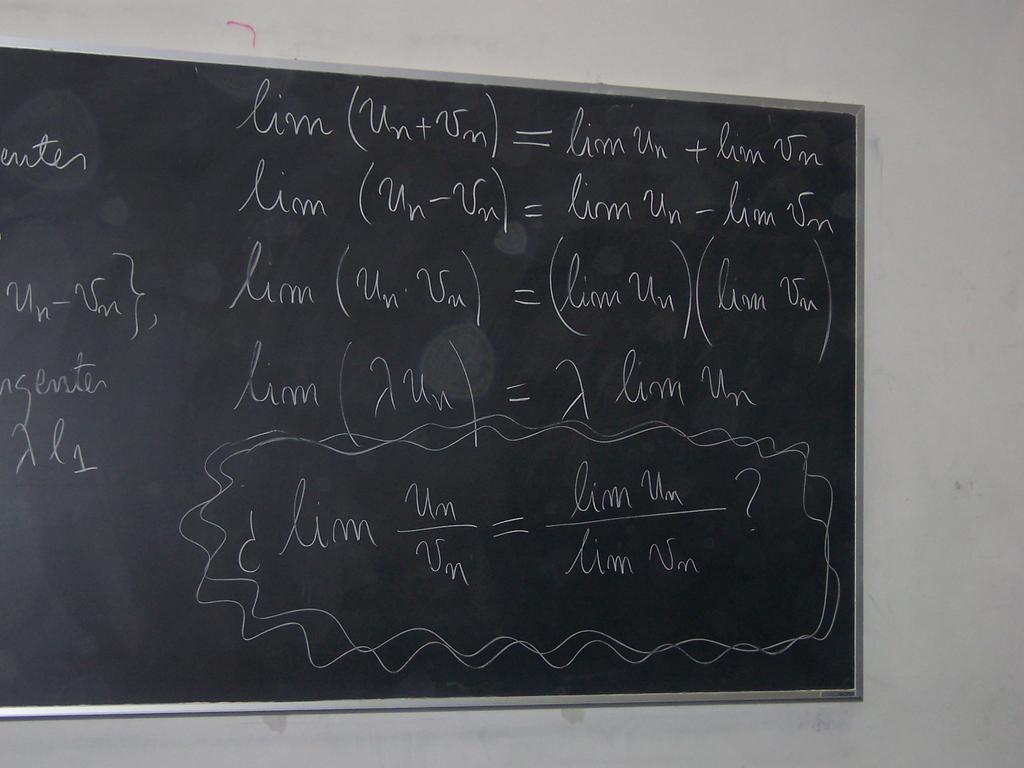 lim (u_n + v_n) = lim u_n + lim v_n
lim (u_n - v_n) = lim u_n - lim v_n
u_n - v_n},
lim (u_n · v_n) = (lim u_n)(lim v_n)
lim (λ u_n) = λ lim u_n
λ l_1
¿ lim u_n / v_n = lim u_n / lim v_n ?